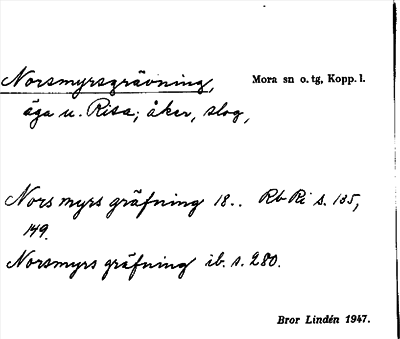 Norsmyrsgrävning, Mora sn o. tg, Kopp. l.
äga u. Risa; åker, slog,
Nors myrs gräfning 18.. Rb Ri s. 135,
149.
Norsmyrs gräfning ib. s. 280.
Bror Lindén 1947.